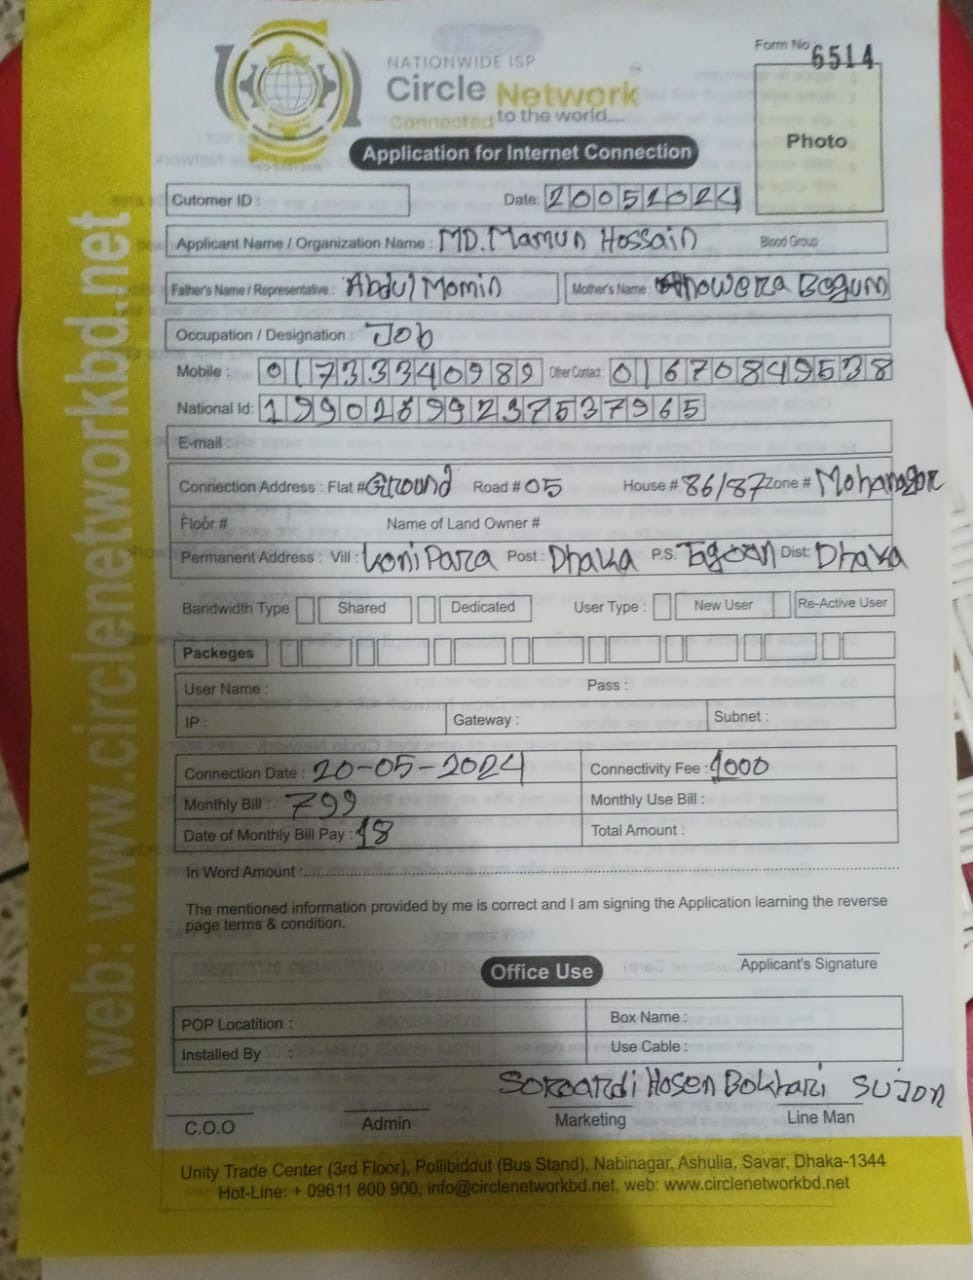 Form No 6514
NATIONWIDE ISP
Circle Network
Connected to the world....
Photo
Application for Internet Connection
Cutomer ID : Date: 20052024
Applicant Name / Organization Name : MD. Mamun Hossain Blood Group
Father's Name / Representative : Abdul Momin Mother's Name : Anowera Begum
Occupation / Designation : Job
Mobile : 01733340989 Other Contact : 01670849538
National Id: 19902899237537965
E-mail :
Connection Address : Flat # Ground Road # 05 House # 86/87 Zone # Mohanagor
Floor # Name of Land Owner #
Permanent Address : Vill : KoniPara Post : Dhaka P.S. Dist: Dhaka
Bandwidth Type Shared Dedicated User Type : New User Re-Active User
Packeges
User Name : Pass :
IP : Gateway : Subnet :
Connection Date : 20-05-2024 Connectivity Fee : 1000
Monthly Bill : 799 Monthly Use Bill :
Date of Monthly Bill Pay : 18 Total Amount :
In Word Amount :
The mentioned information provided by me is correct and I am signing the Application learning the reverse
page terms & condition.
Applicant's Signature
Office Use
POP Locatition : Box Name :
Installed By : Use Cable :
Soroardi Hosen Bokhari SUJON
C.O.O Admin Marketing Line Man
Unity Trade Center (3rd Floor), Pollibiddut (Bus Stand), Nabinagar, Ashulia, Savar, Dhaka-1344
Hot-Line: + 09611 800 900, info@circlenetworkbd.net, web: www.circlenetworkbd.net
web: www.circlenetworkbd.net